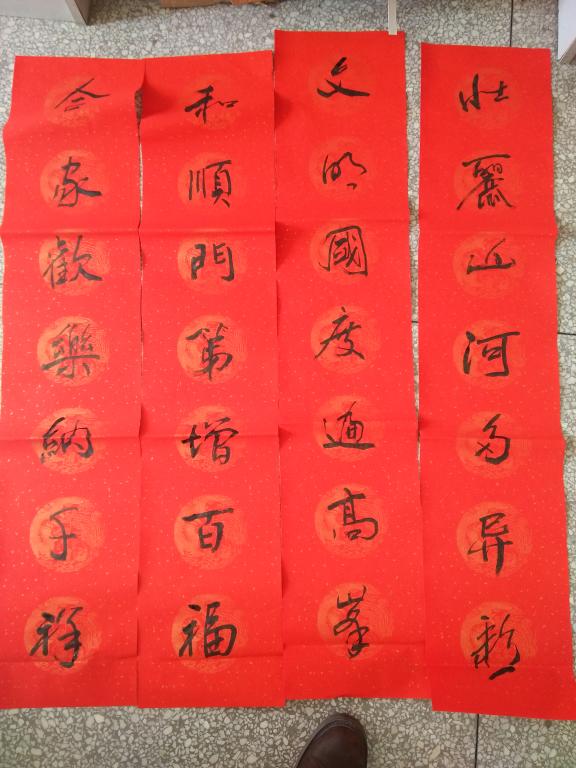 壮麗山河多异彩
文明國度遍高峯
和順門第增百福
合家歡樂納千祥